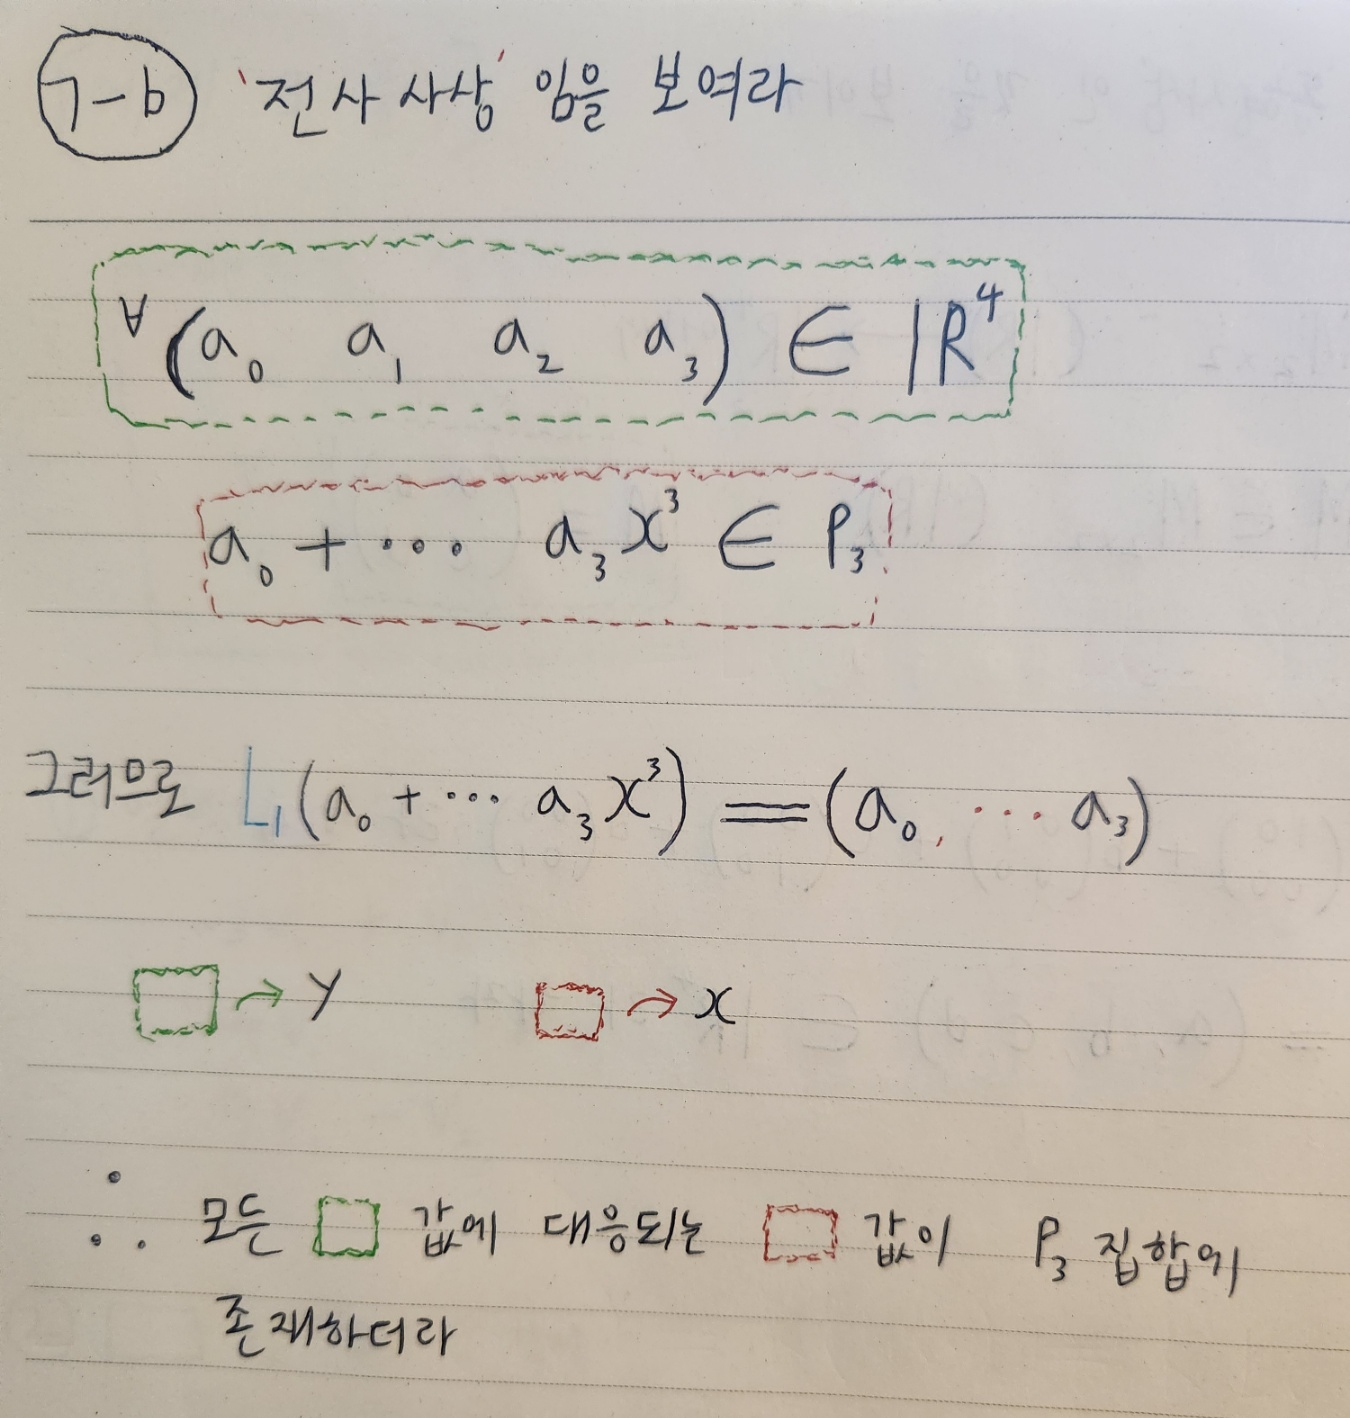 ㄱ-b '전사 사상' 임을 보여라
∀(a₀ a₁ a₂ a₃) ∈ ℝ⁴
a₀ + ⋯ a₃x³ ∈ P₃
그러므로 L₁(a₀ + ⋯ a₃x³) = (a₀, ⋯ a₃)
□ → y □ → x
∴ 모든 □ 값에 대응되는 □ 값이 P₃ 집합에
존재하더라